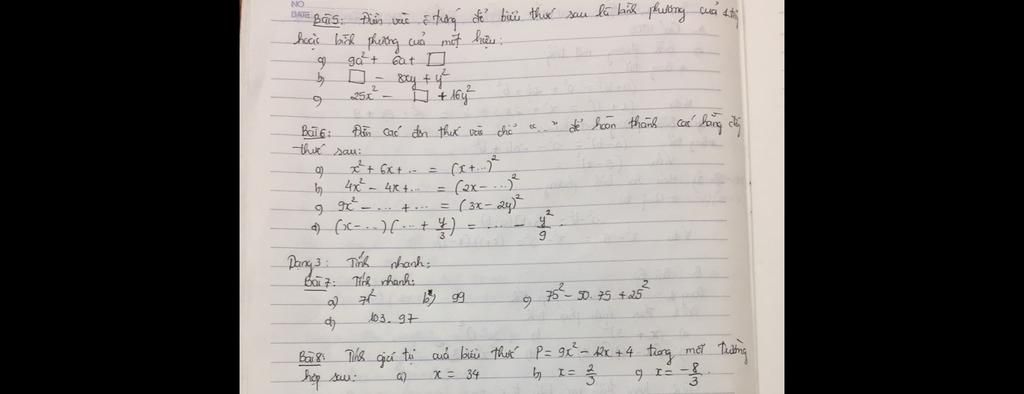 NO
DATE
Bài 5: Điền vào ô trống để biểu thức sau là bình phương của 1 tổng
hoặc bình phương của một hiệu:
a) 9a² + 6a + □
b) □ - 8xy + y²
c) 25x² - □ + 16y²
Bài 6: Điền các đơn thức vào chỗ "..." để hoàn thành các hằng đẳng
thức sau:
a) x² + 6x + ... = (x + ...)²
b) 4x² - 4x + ... = (2x - ...)²
c) 9x² - ... + ... = (3x - 2y)²
d) (x - ...)(... + y/3) = ... - y²/9.
Dạng 3: Tính nhanh:
Bài 7: Tính nhanh:
a) 71² b) 99 c) 75² - 50.75 + 25²
d) 103.97
Bài 8: Tính giá trị của biểu thức P = 9x² - 12x + 4 trong mỗi trường
hợp sau: a) x = 34 b) x = 2/3 c) x = -8/3.